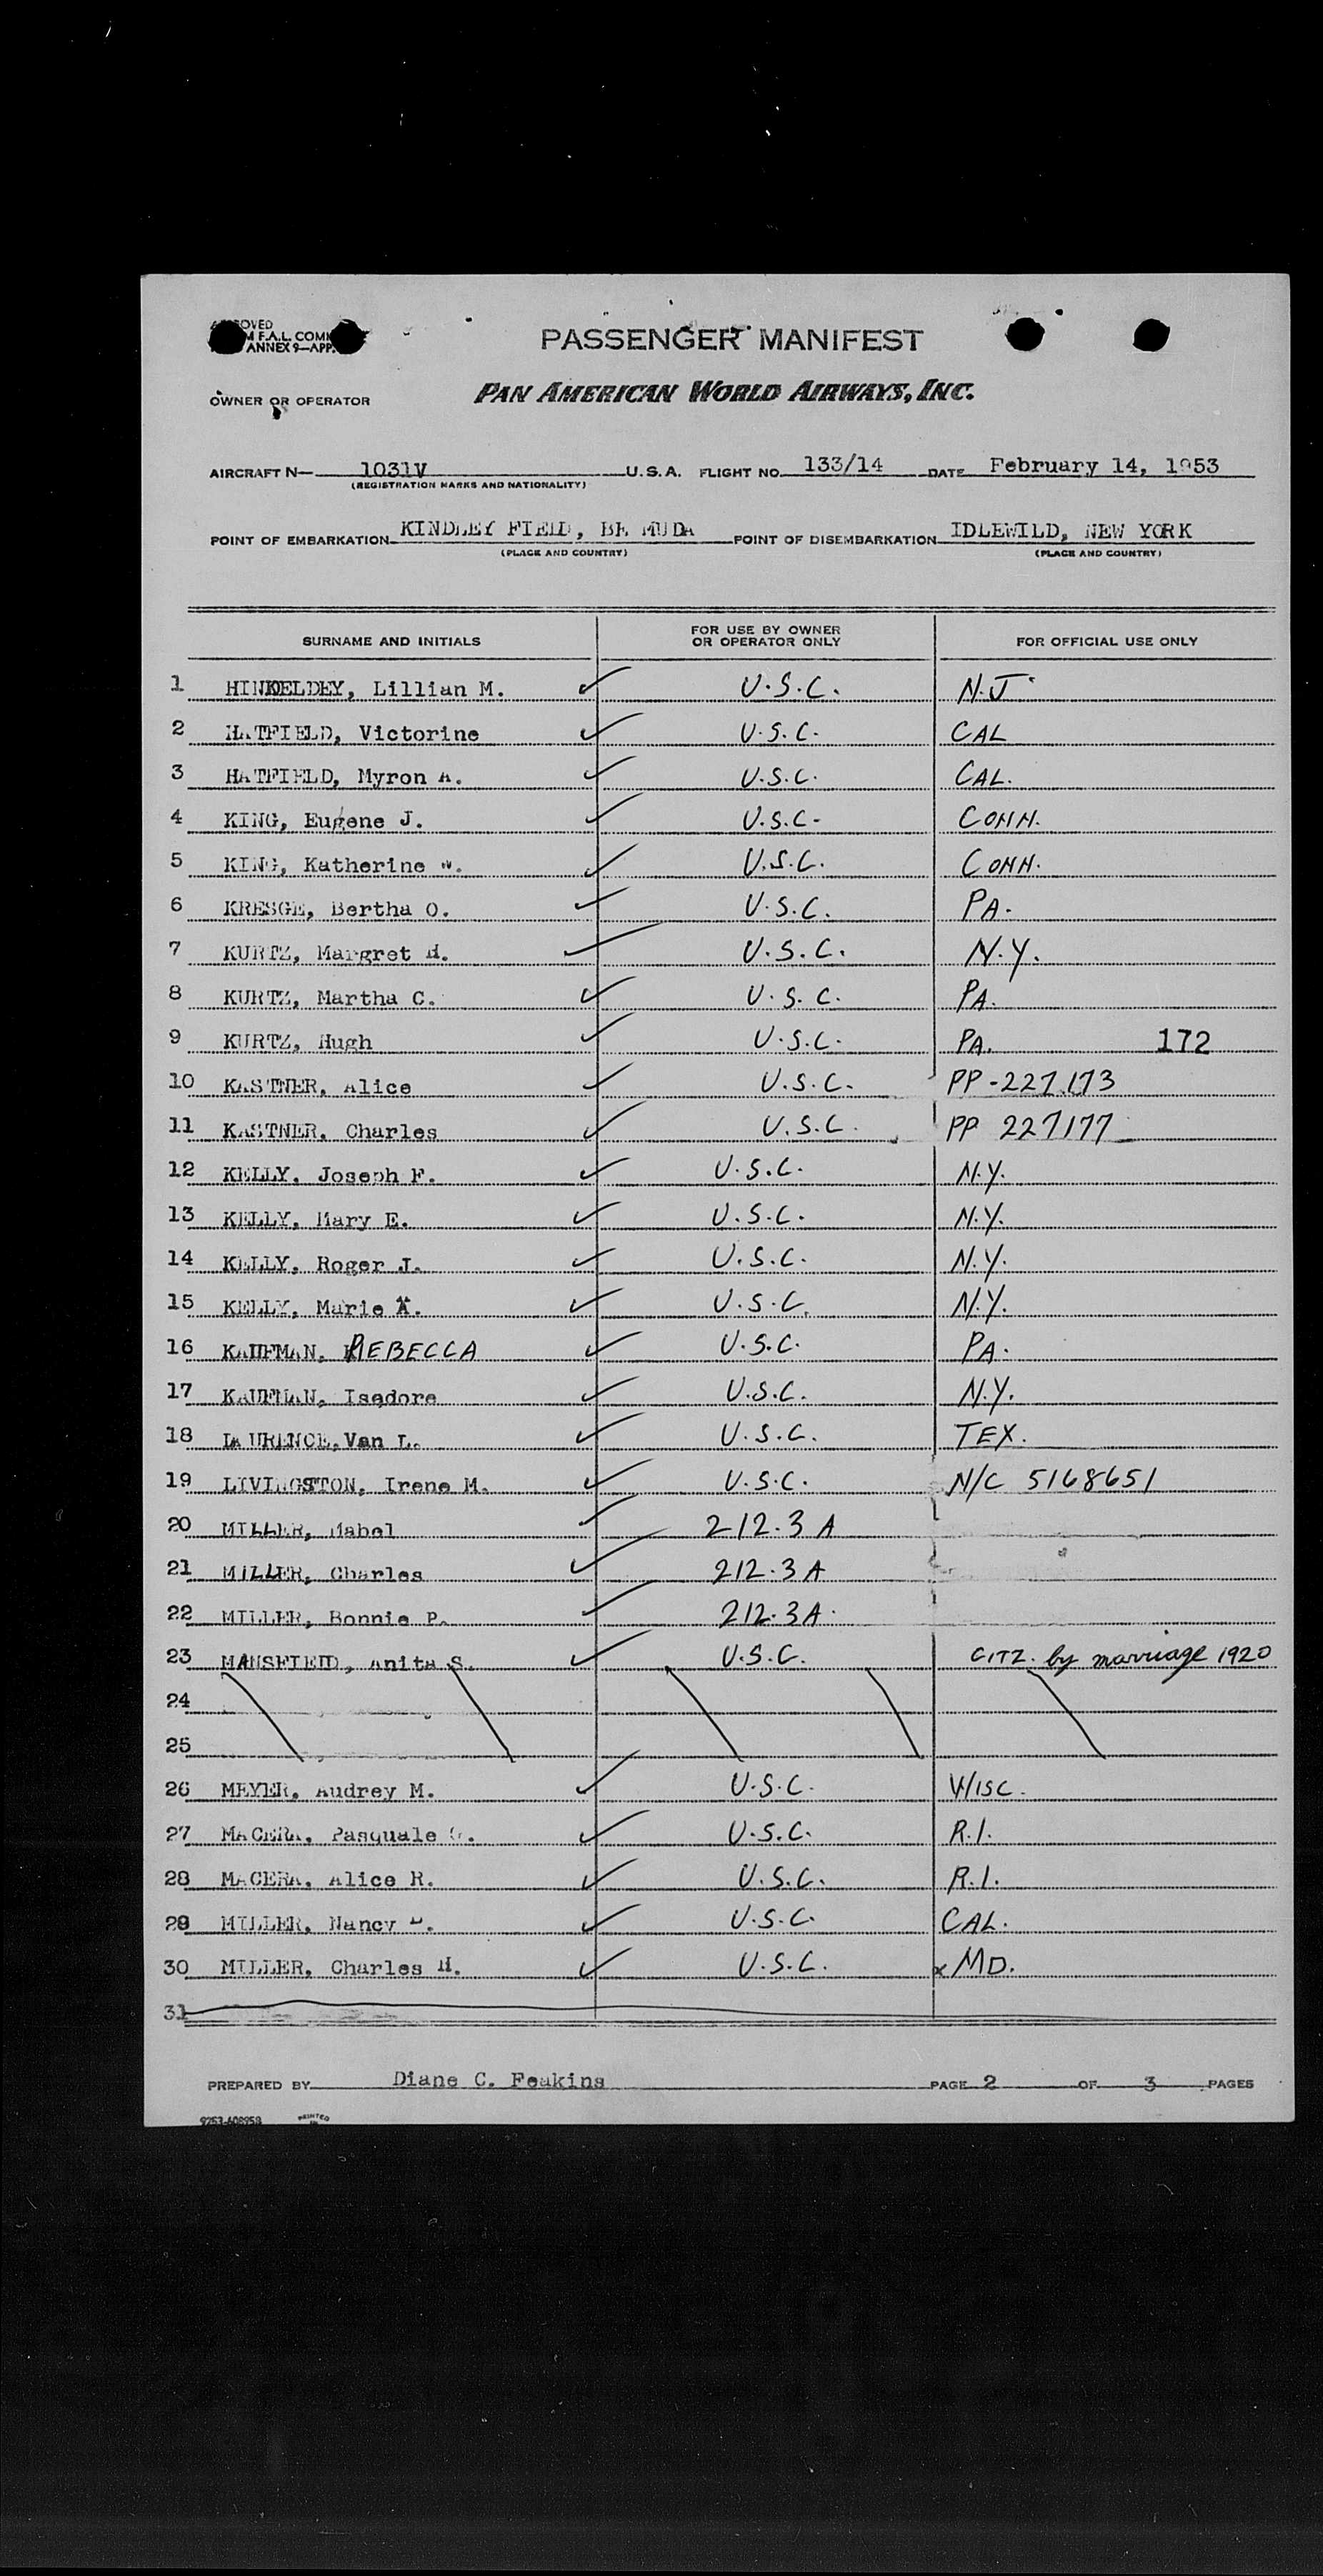 PASSENGER MANIFEST
F.A.L. COM
ANNEX 9—APP.
OWNER OR OPERATOR PAN AMERICAN WORLD AIRWAYS, INC.
AIRCRAFT N— 1031V U.S.A. FLIGHT NO. 133/14 DATE February 14, 1953
(REGISTRATION MARKS AND NATIONALITY)
POINT OF EMBARKATION KINDLEY FIELD, BE MUDA POINT OF DISEMBARKATION IDLEWILD, NEW YORK
(PLACE AND COUNTRY) (PLACE AND COUNTRY)
SURNAME AND INITIALS FOR USE BY OWNER OR OPERATOR ONLY FOR OFFICIAL USE ONLY
1 HINKELDEY, Lillian M. ✓ U.S.C. N.J.
2 HATFIELD, Victorine ✓ U.S.C. CAL
3 HATFIELD, Myron A. ✓ U.S.C. CAL.
4 KING, Eugene J. ✓ U.S.C. CONN.
5 KING, Katherine W. ✓ U.S.C. CONN.
6 KRESGE, Bertha O. ✓ U.S.C. PA.
7 KURTZ, Margret H. ✓ U.S.C. N.Y.
8 KURTZ, Martha C. ✓ U.S.C. PA.
9 KURTZ, Hugh ✓ U.S.C. PA. 172
10 KASTNER, Alice ✓ U.S.C. PP-227173
11 KASTNER, Charles ✓ U.S.C. PP 227177
12 KELLY, Joseph F. ✓ U.S.C. N.Y.
13 KELLY, Mary E. ✓ U.S.C. N.Y.
14 KELLY, Roger J. ✓ U.S.C. N.Y.
15 KELLY, Marie A. ✓ U.S.C. N.Y.
16 KAUFMAN, REBECCA ✓ U.S.C. PA.
17 KAUFMAN, Isadore ✓ U.S.C. N.Y.
18 LAURENCE, Van L. ✓ U.S.C. TEX.
19 LIVINGSTON, Irene M. ✓ U.S.C. N/C 5168651
20 MILLER, Mabel ✓ 212.3 A
21 MILLER, Charles ✓ 212.3A
22 MILLER, Bonnie P. ✓ 212.3A
23 MANSFIELD, Anita S. ✓ U.S.C. CITZ. by marriage 1920
24
25
26 MEYER, Audrey M. ✓ U.S.C. WISC.
27 MACERA, Pasquale G. ✓ U.S.C. R.I.
28 MACERA, Alice R. ✓ U.S.C. R.I.
29 MILLER, Nancy ✓ U.S.C. CAL.
30 MILLER, Charles H. ✓ U.S.C. x MD.
31
PREPARED BY Diane C. Feakins PAGE 2 OF 3 PAGES
9253-608958 PRINTED